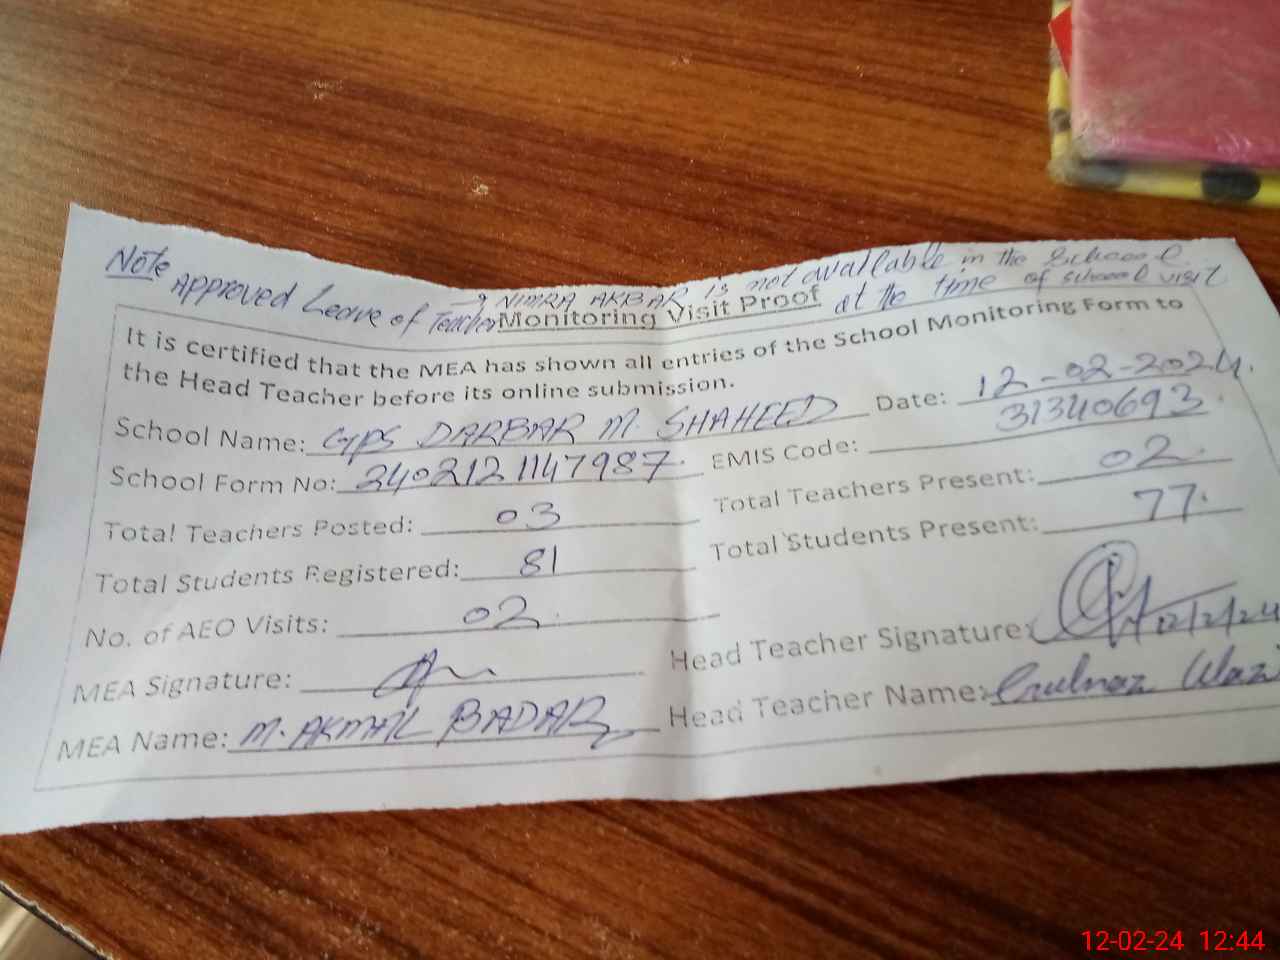 Note Approved Leave of Teacher → NIMRA AKBAR is not available in the School
at the time of school visit
Monitoring Visit Proof
It is certified that the MEA has shown all entries of the School Monitoring Form to
the Head Teacher before its online submission.
School Name: GPS DARBAR M. SHAHEED Date: 12-02-2024.
School Form No: 2402121147987. EMIS Code: 31340693.
Total Teachers Posted: 03 Total Teachers Present: 02.
Total Students Registered: 81 Total Students Present: 77.
No. of AEO Visits: 02.
MEA Signature: Head Teacher Signature: 12/2/24
MEA Name: M. AKMAL BADAR Head Teacher Name:
12-02-24 12:44